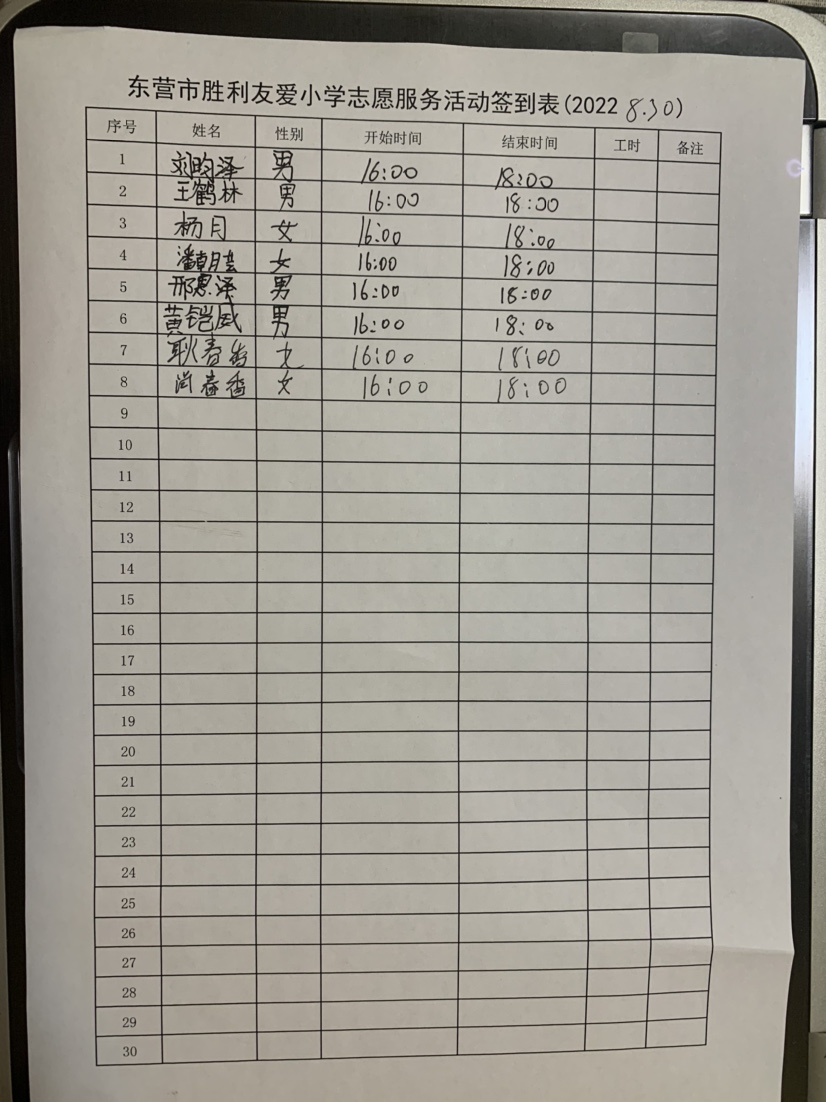 东营市胜利友爱小学志愿服务活动签到表(2022 8.30)
序号 姓名 性别 开始时间 结束时间 工时 备注
1 刘昀泽 男 16:00 18:00
2 王鹤林 男 16:00 18:00
3 杨月 女 16:00 18:00
4 女 16:00 18:00
5 邢恩泽 男 16:00 18:00
6 黄铠威 男 16:00 18:00
7 耿春 女 16:00 18:00
8 尚春香 女 16:00 18:00
9
10
11
12
13
14
15
16
17
18
19
20
21
22
23
24
25
26
27
28
29
30